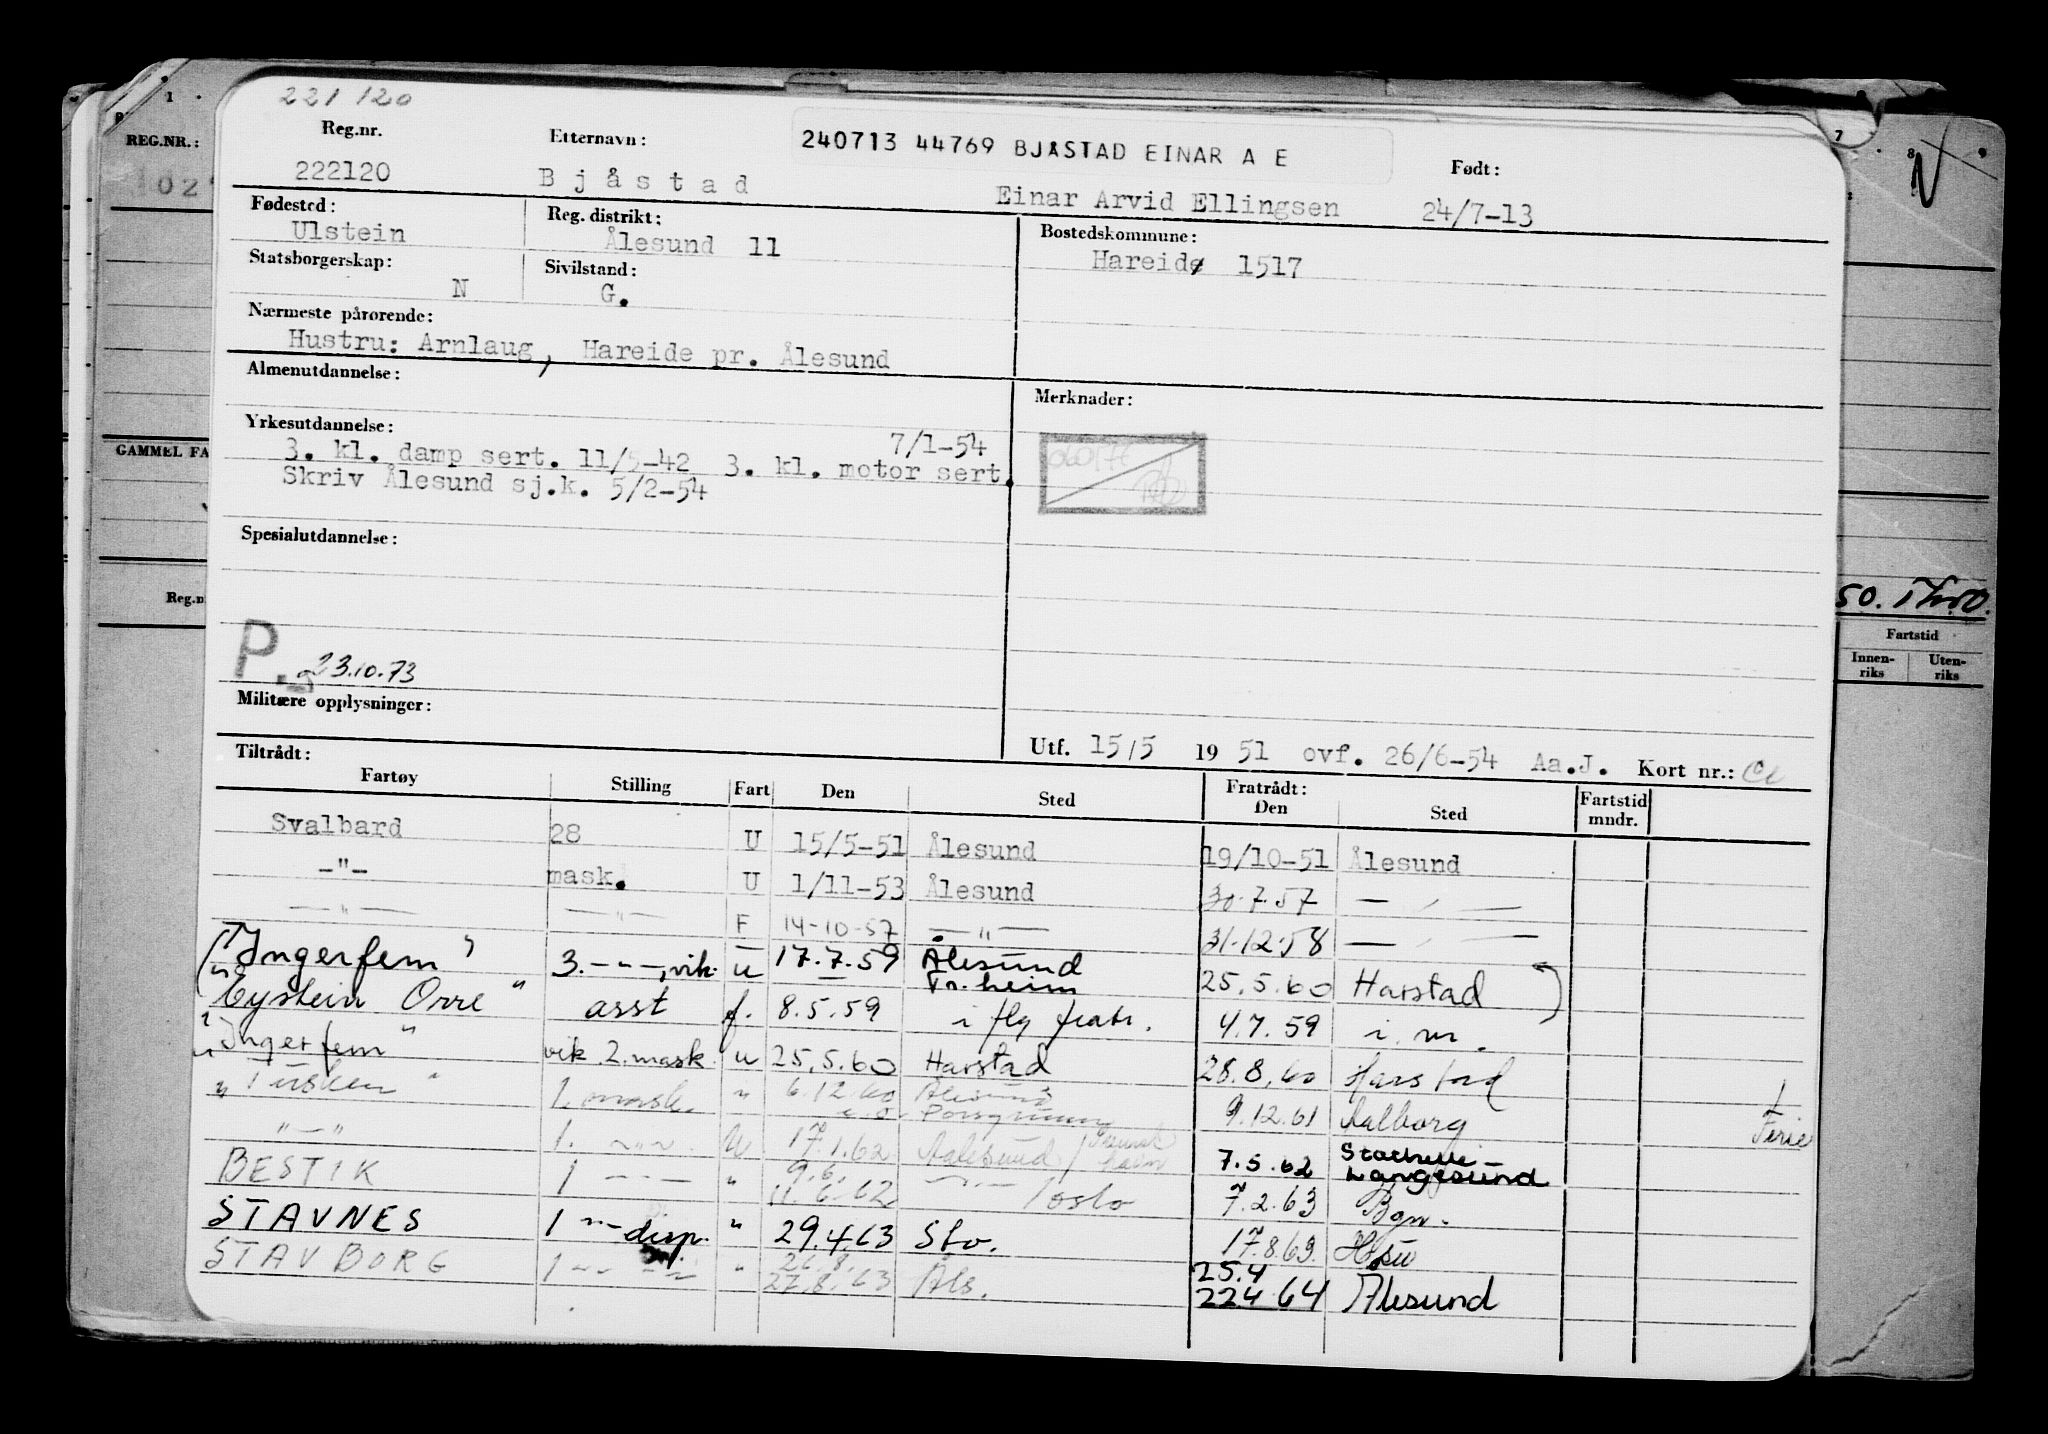 221120
Reg.nr. Etternavn: 240713 44769 BJÅSTAD EINAR A E Født:
222120 Bjåstad Einar Arvid Ellingsen 24/7-13
Fødested: Reg. distrikt: Bostedskommune:
Ulstein Ålesund 11 Hareid 1517
Statsborgerskap: Sivilstand:
N G.
Nærmeste pårørende:
Hustru: Arnlaug, Hareide pr. Ålesund
Almenutdannelse: Merknader:
Yrkesutdannelse: 7/1-54
3. kl. damp sert. 11/5-42 3. kl. motor sert.
Skriv Ålesund sj.k. 5/2-54
Spesialutdannelse:
P. 23.10.73
Militære opplysninger:
Utf. 15/5 1951 ovf. 26/6-54 Aa.J. Kort nr.:
Tiltrådt: Fratrådt:
Fartøy Stilling Fart Den Sted Den Sted Fartstid mndr.
Svalbard 28 U 15/5-51 Ålesund 19/10-51 Ålesund
-"- mask. U 1/11-53 Ålesund 30.7.57 — " —
— " — — " — F 14-10-57 — " — 31.12.58 — " —
"Ingerfem" 3. -"-, vik. u 17.7.59 Ålesund Tr.heim 25.5.60 Harstad
"Eystein Orre" asst f. 8.5.59 i flg fratr. 4.7.59 i. m.
"Ingerfem" vik 2. mask. u 25.5.60 Harstad 28.8.60 Harstad
"Tusken" 1. mask. " 6.12.60 Ålesund Porsgrunn 9.12.61 Aalborg Ferie
" — " 1. -"- U 17.1.62 Aalesund / 7.5.62 Stathelle - Langesund
BESTIK 1 -"- " 9.6. 11.6.62 -"- / Oslo 7.2.63 Bgn.
STAVNES 1 -"- disp. " 29.4.63 Sto. 17.8.63
STAVBORG 1 -"- " 26.8. 27.8.63 Åls. 25.4 22.4 64 Ålesund
REG.NR.:
GAMMEL FA
Reg.n
1
7 8 9
N
50.
Fartstid
Innen-riks Uten-riks